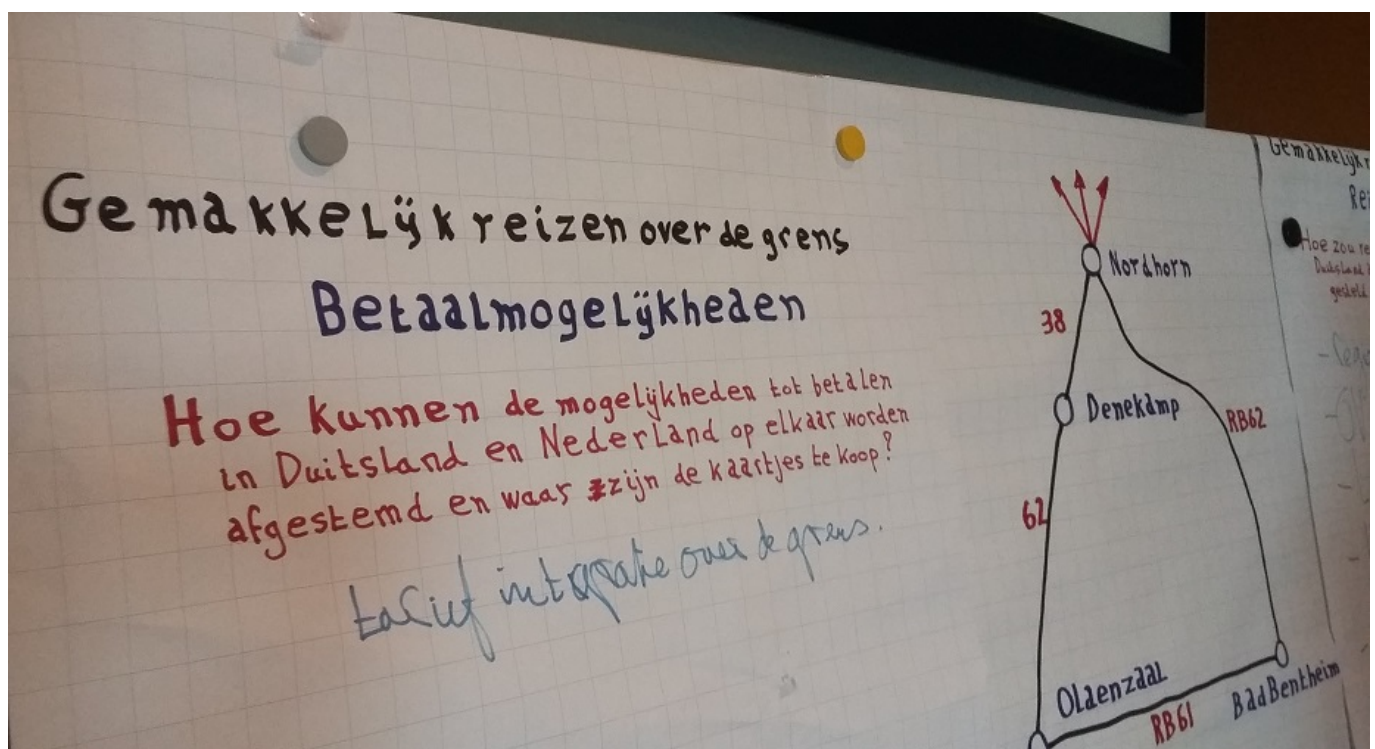 Gemakkelijk reizen over de grens
Betaalmogelijkheden
Hoe kunnen de mogelijkheden tot betalen
in Duitsland en Nederland op elkaar worden
afgestemd en waar zijn de kaartjes te koop?
tarief integratie over de grens.
Nordhorn
38
Denekamp
RB62
62
Oldenzaal
RB61
Bad Bentheim
Gemakkelijk r
Hoe zou
Duitsland
gesteld